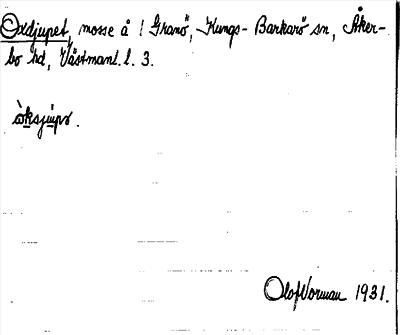 Oxdjupet, mosse å ! Granö, Kungs-Barkarö sn, Åker-
bo hd, Västmanl. l. 3.
òksjuper.
Olof Vorman 1931.